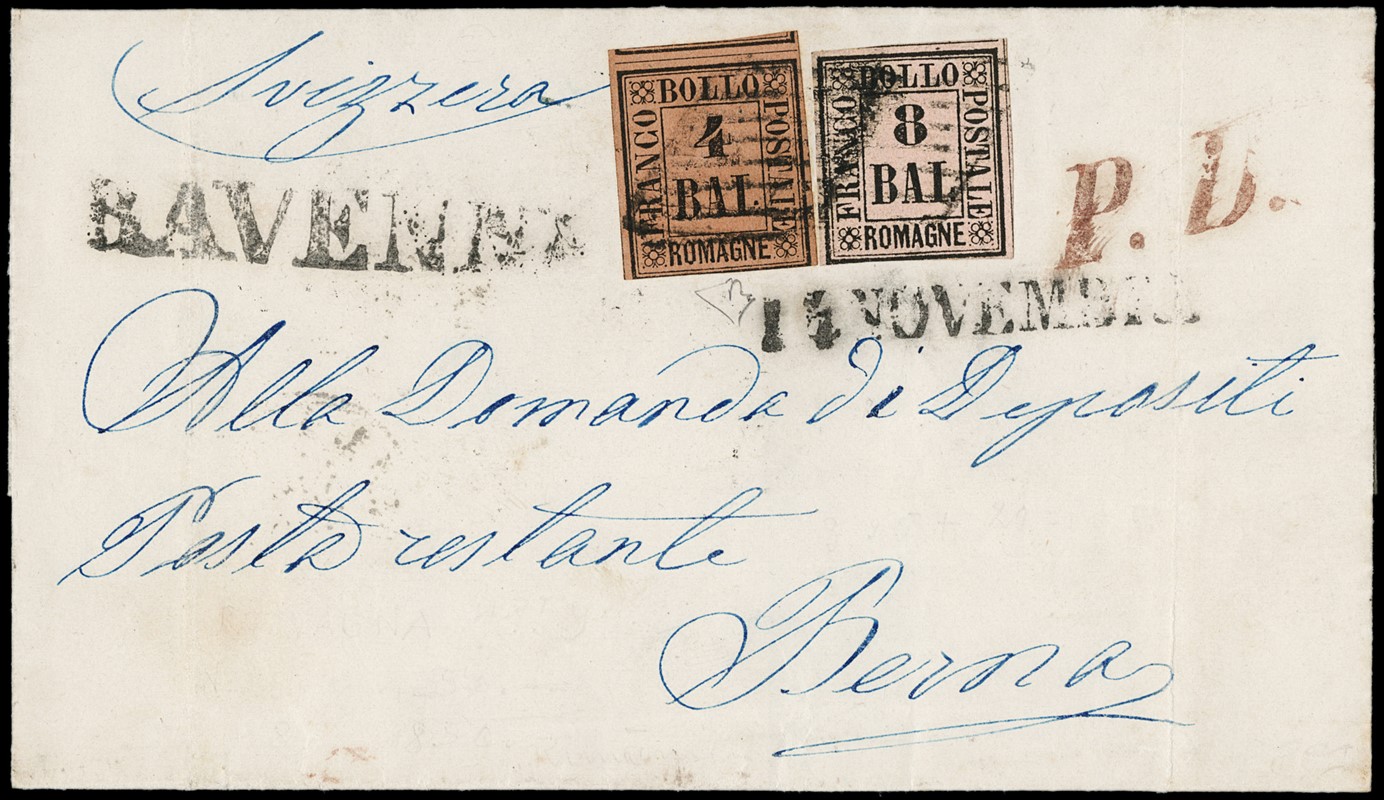 Svizzera
BOLLO
FRANCO
4
BAL
POSTALE
ROMAGNE
BOLLO
FRANCO
8
BAL
POSTALE
ROMAGNE
P. D.
RAVENNA
14 NOVEMBRE
Alla Domanda di Depositi
Posta restante
Berna